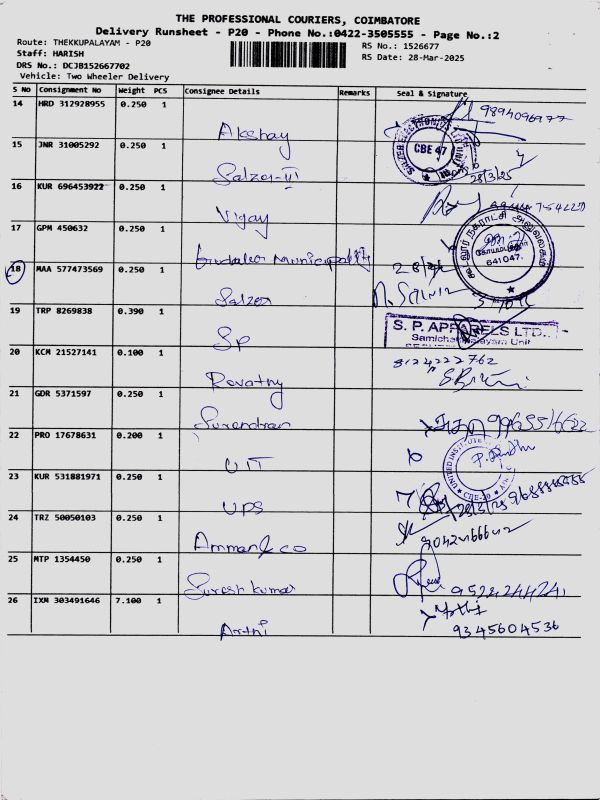 THE PROFESSIONAL COURIERS, COIMBATORE
Delivery Runsheet - P20 - Phone No.:0422-3505555 - Page No.:2
Route: THEKKUPALAYAM - P20
RS No.: 1526677
Staff: HARISH
RS Date: 28-Mar-2025
DRS No.: DCJB152667702
Vehicle: Two Wheeler Delivery
S No Consignment No Weight PCS Consignee Details Remarks Seal & Signature
14 HRD 312928955 0.250 1
Akshay
9894096977
15 JNR 31005292 0.250 1
Salzer-III
CBE 47
28/3/25
16 KUR 696453922 0.250 1
Vijay
17 GPM 450632 0.250 1
Gudalur Municipality
641047.
18 MAA 577473569 0.250 1
Salzer
19 TRP 8269838 0.390 1
SP
S. P. APPARELS LTD.,
Samichettipalayam Unit
20 KCM 21527141 0.100 1
Revathy
8124222762
21 GDR 5371597 0.250 1
Surendran
22 PRO 17678631 0.200 1
UIT
UNITED INSTITUTE
23 KUR 531881971 0.250 1
UPS
28/3/25
24 TRZ 50050103 0.250 1
Amman & co
25 MTP 1354450 0.250 1
Suresh kumar
9524244241
26 IXM 303491646 7.100 1
Arthi
9345604536